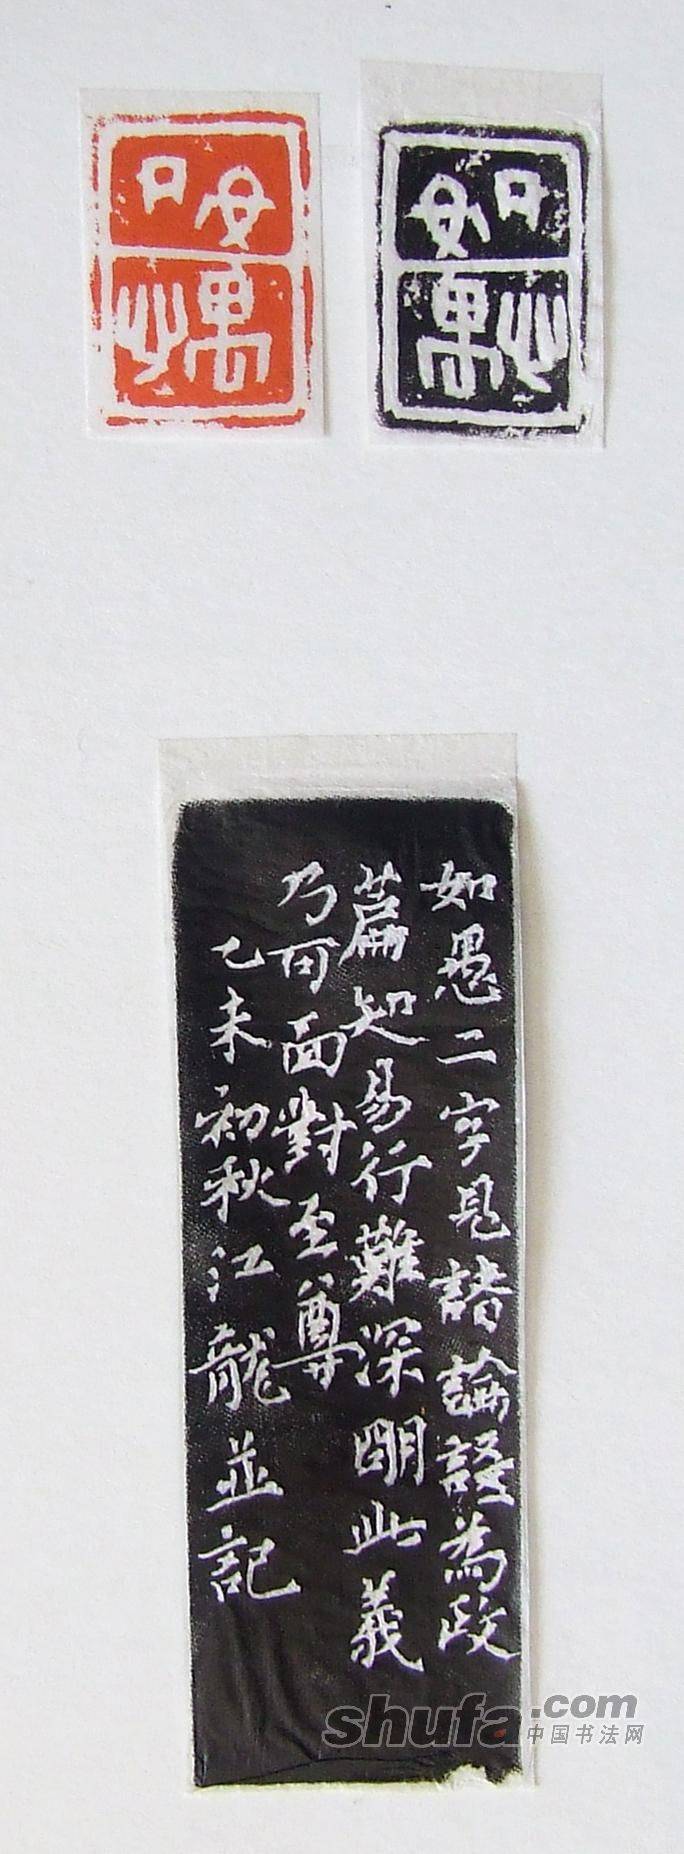 如愚
如愚
如愚二字見諸論語為政
篇知易行難深明此義
乃可面對至尊
乙未初秋江龍並記
shufa.com
中国书法网